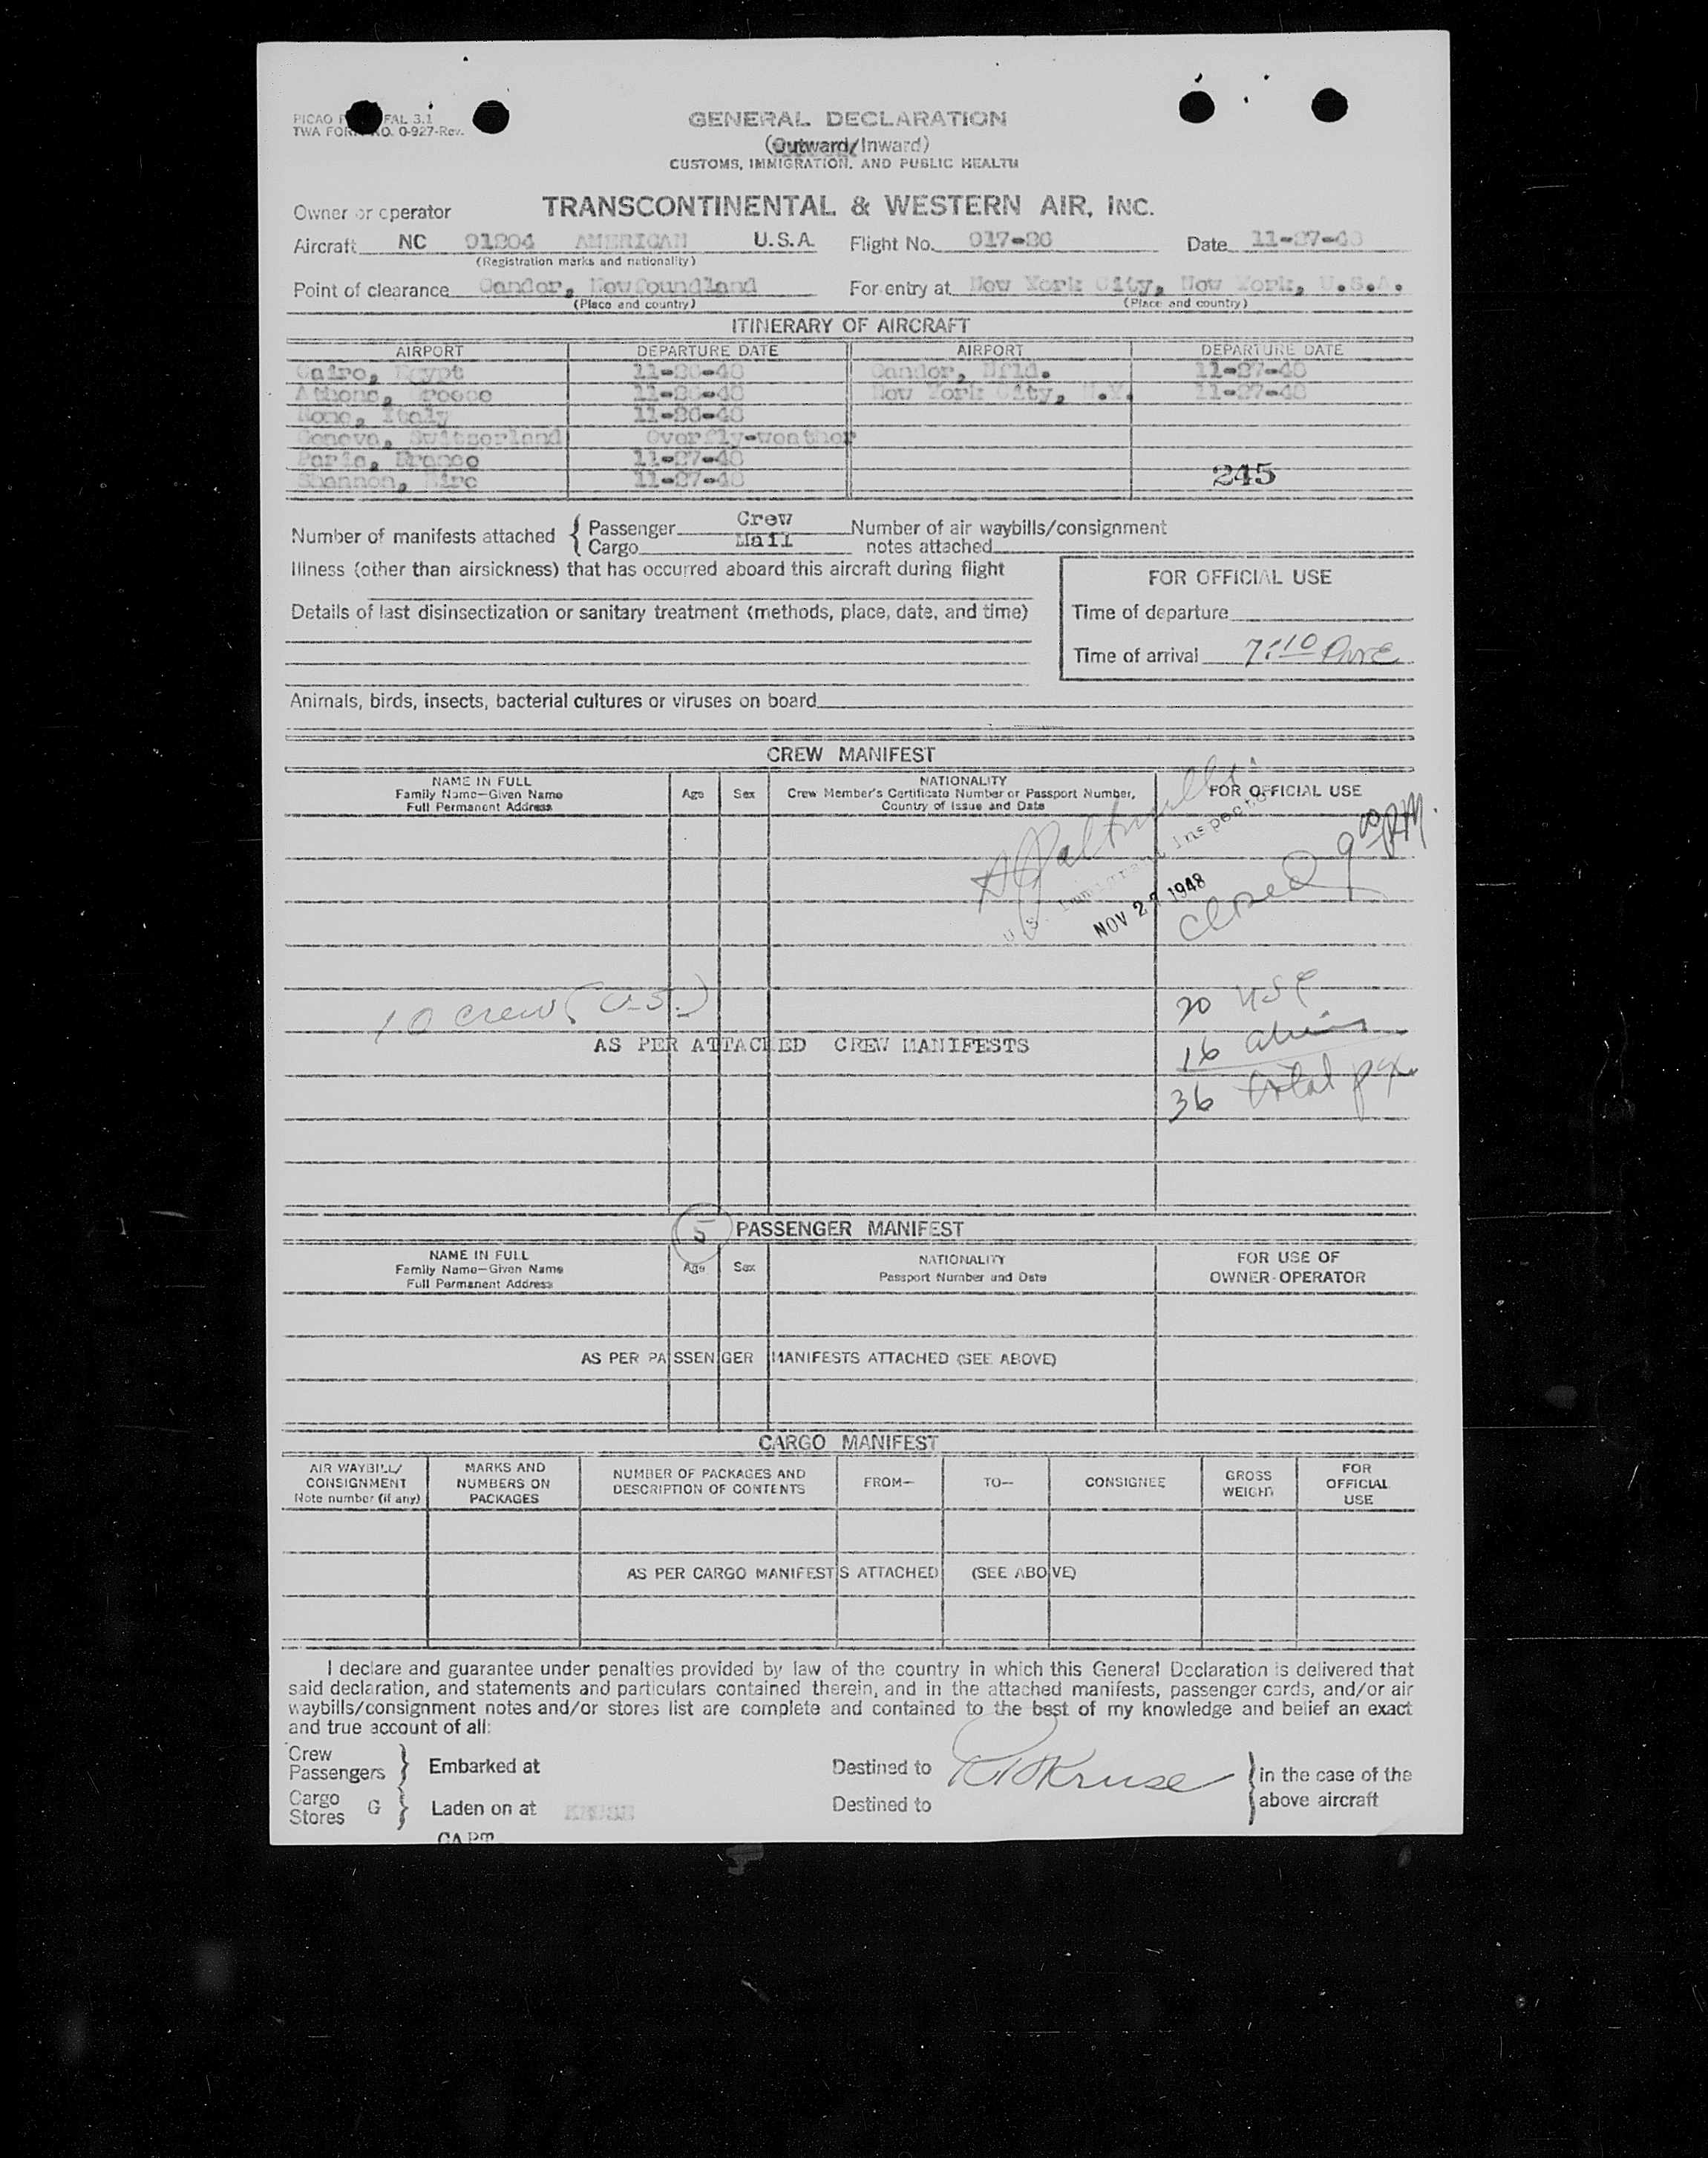 FAL 3.1
TWA FORM NO. O-927-Rev.
GENERAL DECLARATION
(Outward/Inward)
CUSTOMS, IMMIGRATION, AND PUBLIC HEALTH
Owner or operator TRANSCONTINENTAL & WESTERN AIR, INC.
Aircraft NC 91204 AMERICAN U.S.A. Flight No. 917-26 Date 11-27-48
(Registration marks and nationality)
Point of clearance Gander, Newfoundland For entry at New York City, New York, U.S.A.
(Place and country) (Place and country)
ITINERARY OF AIRCRAFT
AIRPORT DEPARTURE DATE AIRPORT DEPARTURE DATE
Cairo, Egypt 11-26-48 Gander, Nfld. 11-27-48
Athens, Greece 11-26-48 New York City, N.Y. 11-27-48
Rome, Italy 11-26-48
Geneva, Switzerland Overfly-weather
Paris, France 11-27-48
Shannon, Eire 11-27-48 245
Number of manifests attached { Passenger Crew Number of air waybills/consignment
Cargo Mail notes attached
Illness (other than airsickness) that has occurred aboard this aircraft during flight
FOR OFFICIAL USE
Details of last disinsectization or sanitary treatment (methods, place, date, and time)
Time of departure
Time of arrival 7:10
Animals, birds, insects, bacterial cultures or viruses on board
CREW MANIFEST
NAME IN FULL
Family Name—Given Name
Full Permanent Address
Age Sex
NATIONALITY
Crew Member's Certificate Number or Passport Number,
Country of Issue and Date
FOR OFFICIAL USE
U.S. Immigrant Inspector
NOV 27 1948
closed 9 00 PM.
10 crew (U.S.)
20 USC
AS PER ATTACHED CREW MANIFESTS
16 aliens
36 total pax
5 PASSENGER MANIFEST
NAME IN FULL
Family Name—Given Name
Full Permanent Address
Age Sex
NATIONALITY
Passport Number and Date
FOR USE OF
OWNER-OPERATOR
AS PER PASSENGER MANIFESTS ATTACHED (SEE ABOVE)
CARGO MANIFEST
AIR WAYBILL/
CONSIGNMENT
Note number (if any)
MARKS AND
NUMBERS ON
PACKAGES
NUMBER OF PACKAGES AND
DESCRIPTION OF CONTENTS
FROM—
TO—
CONSIGNEE
GROSS
WEIGHT
FOR
OFFICIAL
USE
AS PER CARGO MANIFESTS ATTACHED (SEE ABOVE)
I declare and guarantee under penalties provided by law of the country in which this General Declaration is delivered that
said declaration, and statements and particulars contained therein, and in the attached manifests, passenger cards, and/or air
waybills/consignment notes and/or stores list are complete and contained to the best of my knowledge and belief an exact
and true account of all:
Crew
Passengers } Embarked at Destined to Kruse } in the case of the
Cargo
Stores G } Laden on at KRUSE Destined to above aircraft
CAPT